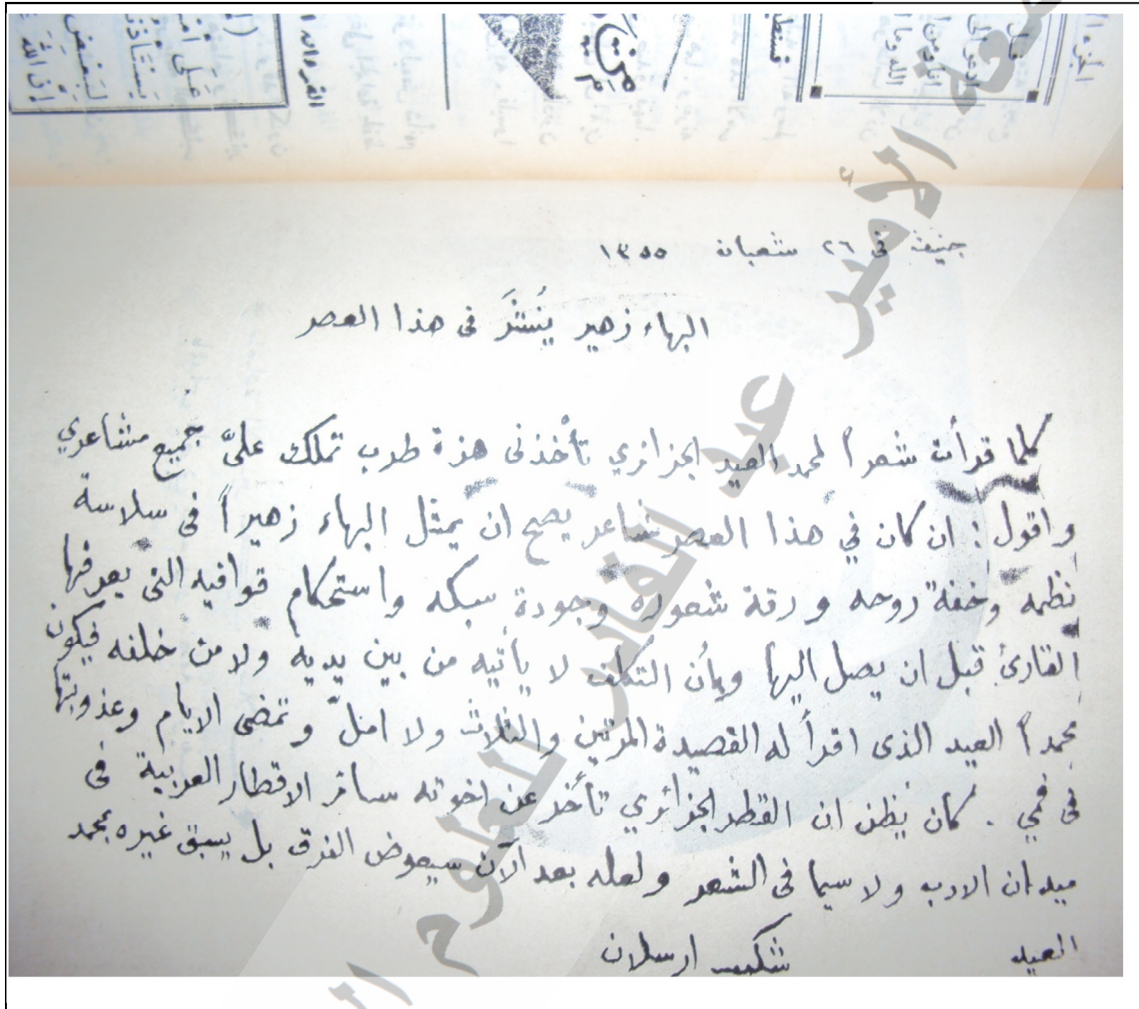 جنيف في ٢٦ شعبان ١٣٥٥
البهاء زهير يُنشَر في هذا العصر
كلما قرأت شعراً لمحمد العيد الجزائري تأخذنى هزة طرب تملك عليّ جميع مشاعري
واقول : ان كان في هذا العصر شاعر يصح ان يمثل البهاء زهيراً في سلاسة
نظمه وخفة روحه ورقة شعوره وجودة سبكه واستحكام قوافيه التى يعرفها
القارئ قبل ان يصل اليها وبأن التكلف لا يأتيه من بين يديه ولا من خلفه فيكون
محمداً العيد الذى اقرأ له القصيدة المرتين والثلاث ولا امل وتمضى الايام وعذوبتها
فى فمي . كان يظن ان القطر الجزائري تأخر عن اخوته سائر الاقطار العربية فى
ميدان الادب ولا سيما فى الشعر ولعله بعد الآن سيعوض الفرق بل يسبق غيره بمحمد
العيد
شكيب ارسلان
عبد القادر للعلوم
الأمير